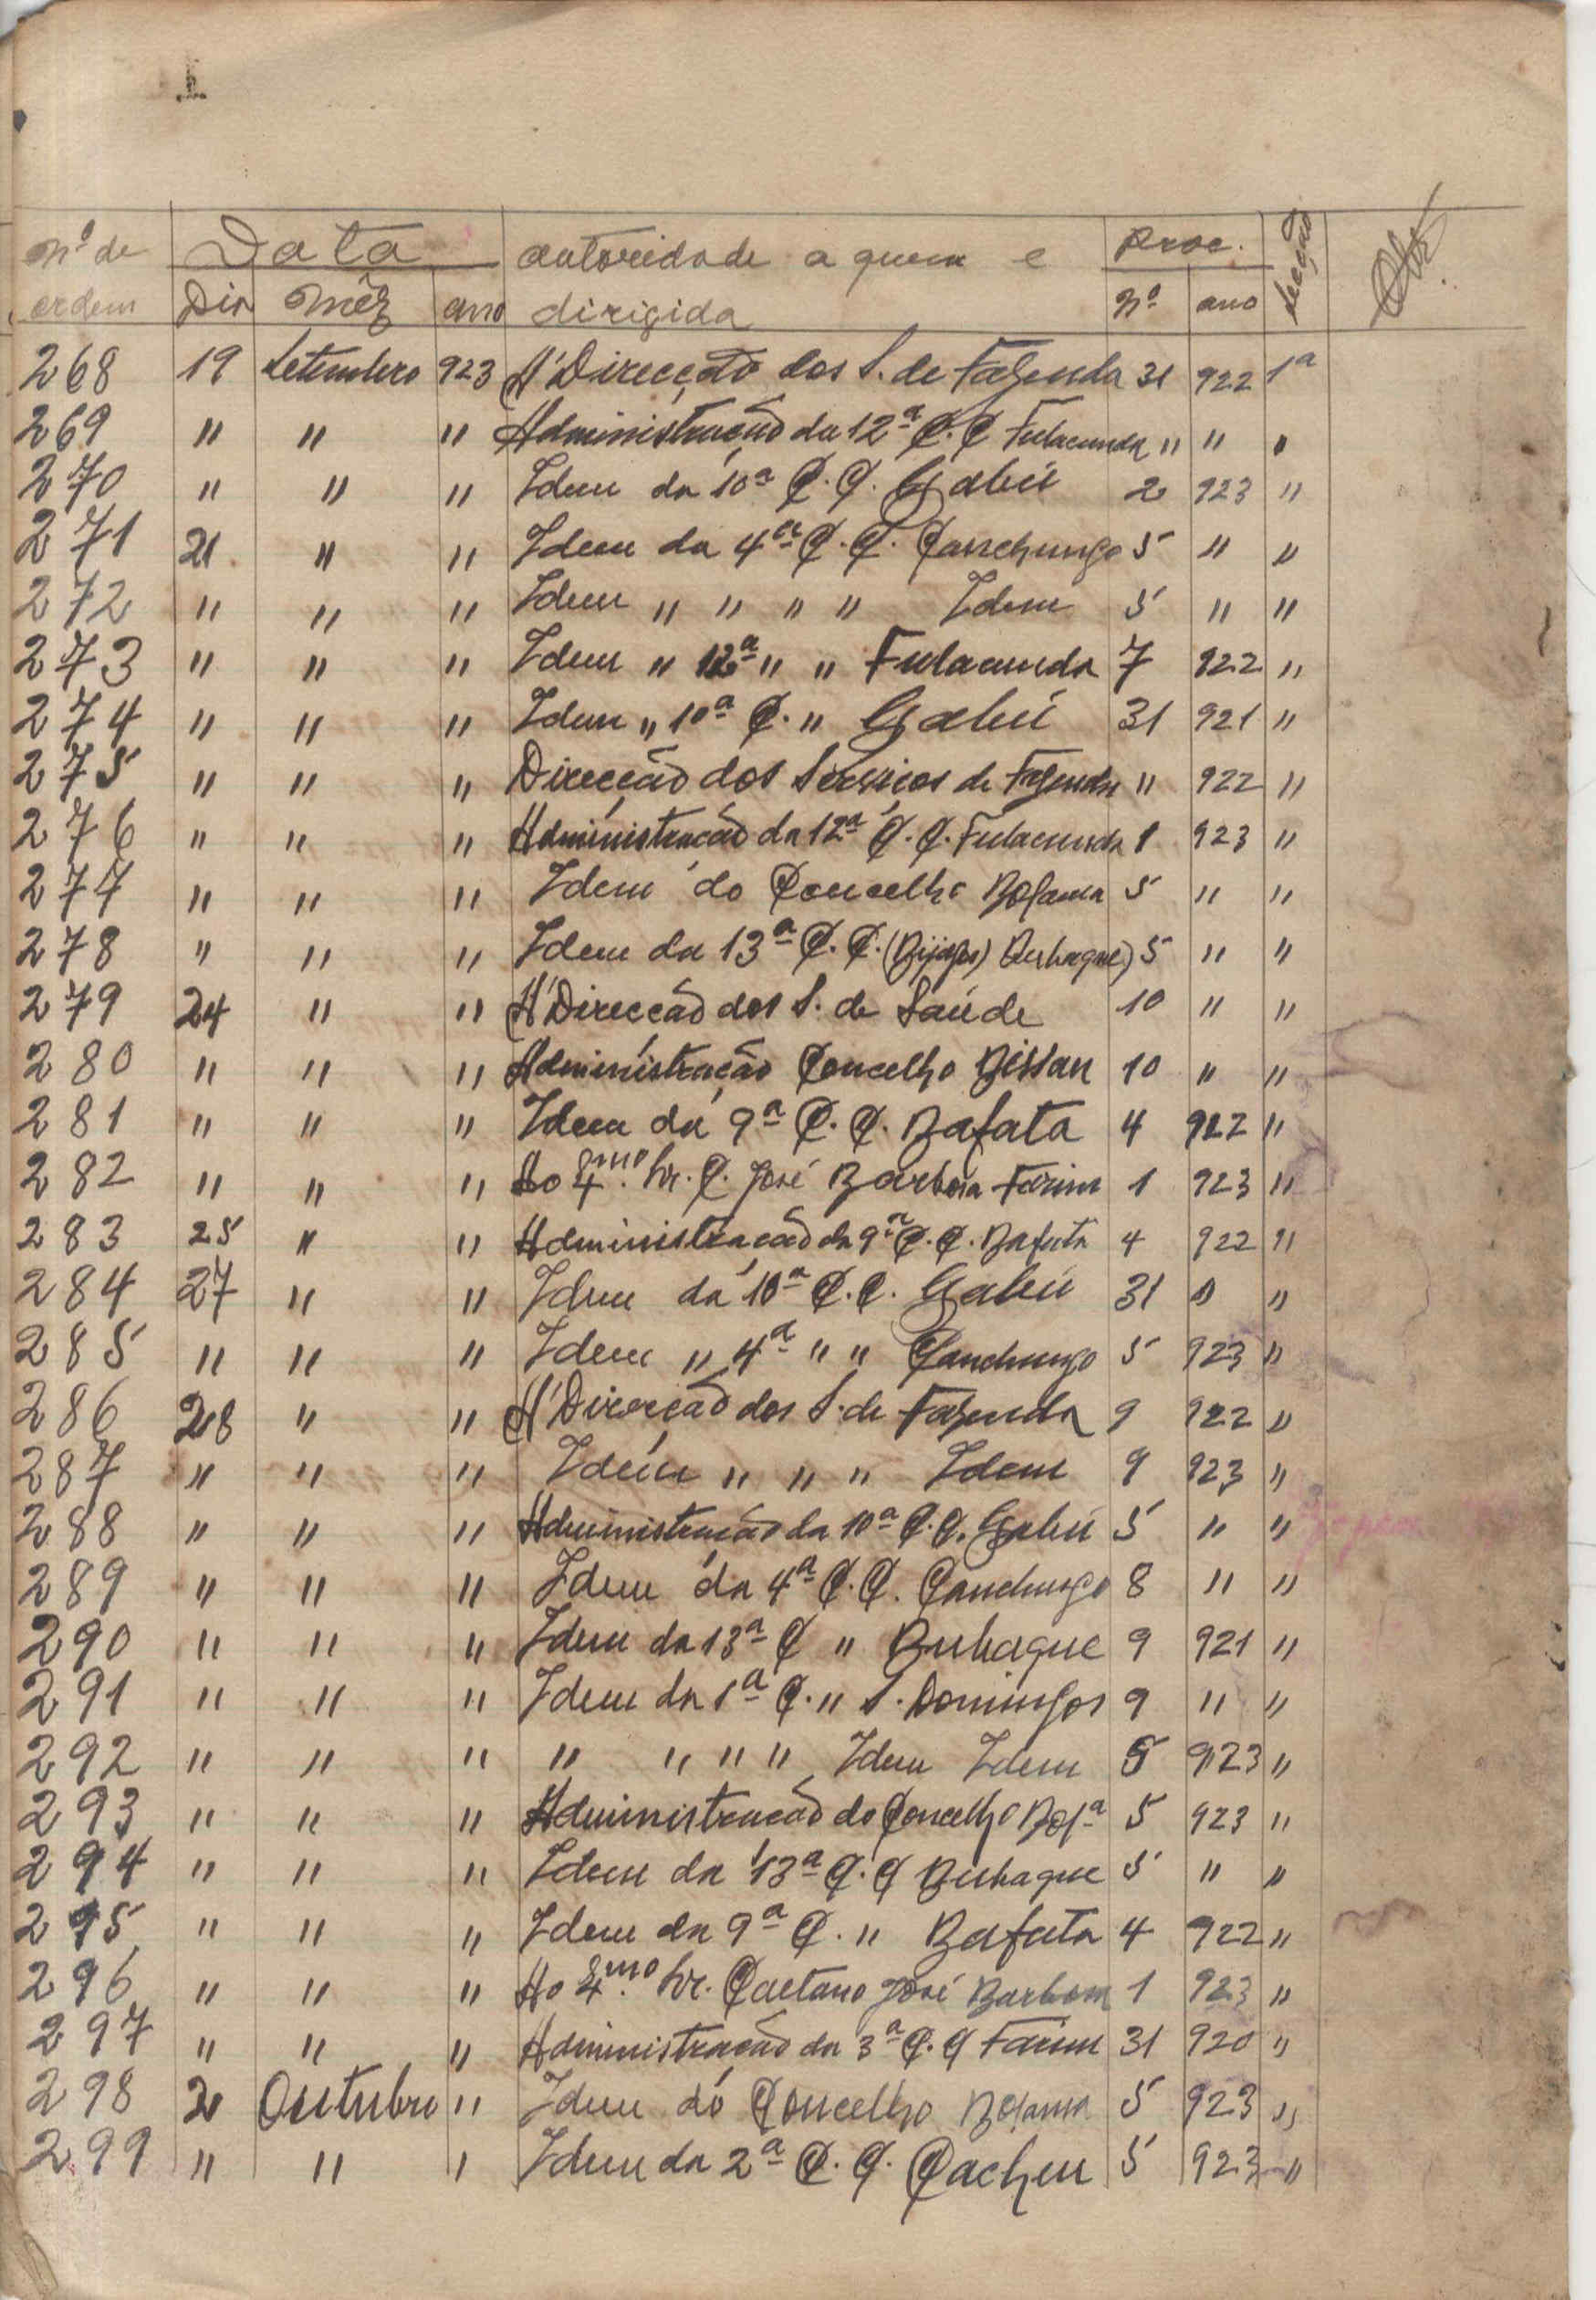 1
Nº de Data autoridade a quem e Proc. Secção Obs.
ordem Dia Mêz ano dirigida Nº ano
268 19 Setembro 923 A' Direcção dos S. de Fazenda 31 922 1ª
269 " " " Administração da 12ª C. C Fulacunda " " "
270 " " " Idem da 10ª C. C. Gabú 2 923 "
271 21 " " Idem da 4ª C. C. Canchungo 5 " "
272 " " " Idem " " " " Idem 5 " "
273 " " " Idem " 12ª " " Fulacunda 7 922 "
274 " " " Idem " 10ª C. " Gabú 31 921 "
275 " " " Direcção dos Serviços de Fazenda " 922 "
276 " " " Administração da 12ª C. C. Fulacunda 1 923 "
277 " " " Idem do Concelho Bolama 5 " "
278 " " " Idem da 13ª C. C. (Bijagós) Bubaque) 5 " "
279 24 " " A' Direcção dos S. de Saúde 10 " "
280 " " " Administração Concelho Bissau 10 " "
281 " " " Idem da 9ª C. C. Bafata 4 922 "
282 " " " Ao Exmo. Sr. C. José Barbosa Farim 1 923 "
283 25 " " Administração da 9ª C. C. Bafata 4 922 "
284 27 " " Idem da 10ª C. C. Gabú 31 " "
285 " " " Idem " 4ª " " Canchungo 5 923 "
286 28 " " A' Direcção dos S. de Fazenda 9 922 "
287 " " " Idem " " " Idem 9 923 "
288 " " " Administração da 10ª C. C. Gabú 5 " "
289 " " " Idem da 4ª C. C. Canchungo 8 " "
290 " " " Idem da 13ª C " Bubaque 9 921 "
291 " " " Idem da 1ª C. " S. Domingos 9 " "
292 " " " " " " " Idem Idem 5 923 "
293 " " " Administração do Concelho Bolª 5 923 "
294 " " " Idem da 13ª C. C Bubaque 5 " "
295 " " " Idem da 9ª C. " Bafata 4 922 "
296 " " " Ao Exmo. Sr. Caetano José Barbosa 1 923 "
297 " " " Administração da 3ª C. C Farim 31 920 "
298 2 Outubro " Idem do Concelho Bolama 5 923 "
299 " " " Idem da 2ª C. C. Cacheu 5 923 "